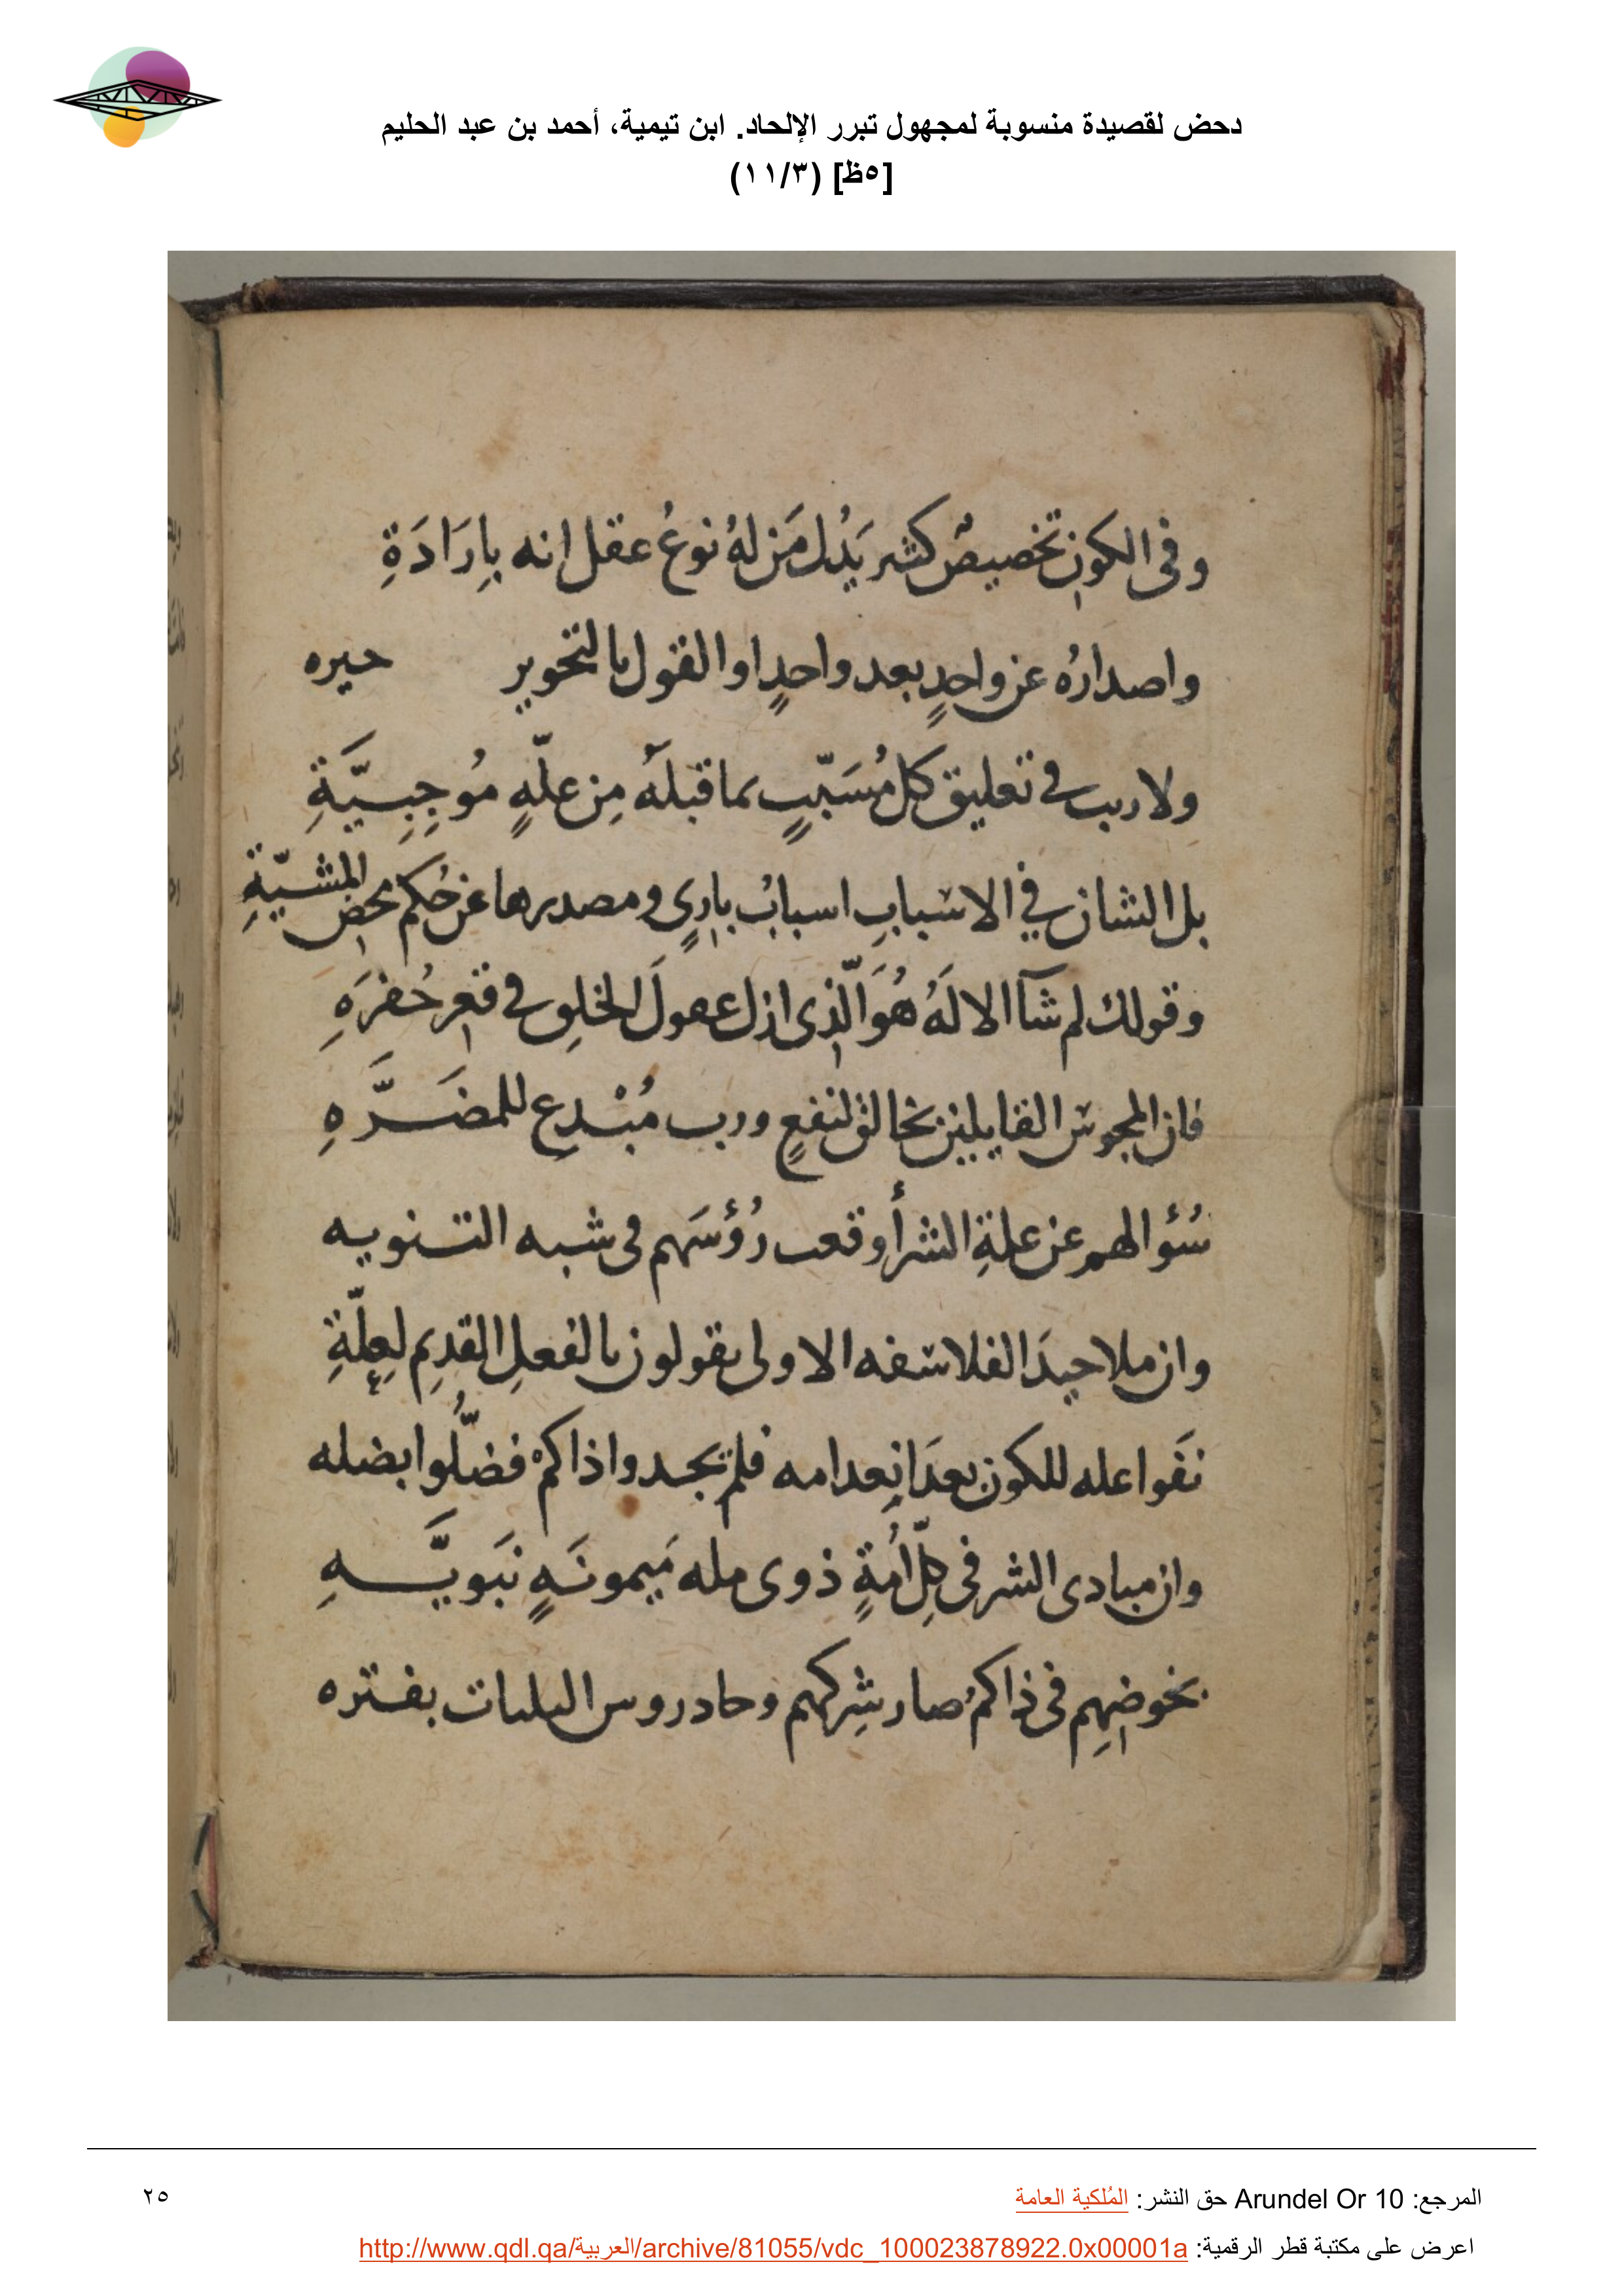 دحض لقصيدة منسوبة لمجهول تبرر الإلحاد. ابن تيمية، أحمد بن عبد الحليم
[٥ظ] (١١/٣)
وفى الكون تخصيصٌ كثير يَدُل مَن لهُ نوعُ عقل انه بِارَادَةِ
واصدارُه عن واحدٍ بعد واحدٍ او القول بالتجوير حيره
ولا ريب في تعليق كل مُسَبّبٍ بما قبلَهُ مِن علّهٍ مُوجِبِيَّةِ
بل الشان في الاسبابِ اسبابُ بارئٍ ومصدرها عن حُكم محض المشيّةِ
وقولك لم شآ الالَهُ هُوَ الّذى ازل عقولَ الخلِق في قعر حُفرَهِ
فان المجوس القايلين بخالق لنفعٍ ورب مُبْدِع للمضَرَّهِ
سُؤالهم عن علةِ الشر أوقعت رُؤسَهم فى شبه الثنويه
وان ملاحيدَ الفلاسفه الاولى يقولون بالفعلِ القدِيم لِعِلّةِ
نَفوا عله للكون بعدَ انِعدامه فلم يجدوا ذاكمْ فضلُّوا بضله
وان مبادى الشر فى كِلّ اُمةٍ ذوى مله مَيمونَهٍ نبَويَّهِ
بخوضِهِم فى ذاكمُ صار شِركهم وحا دروس البينات بفتره
المرجع: Arundel Or 10 حق النشر: المُلكية العامة
٢٥
اعرض على مكتبة قطر الرقمية: http://www.qdl.qa/العربية/archive/81055/vdc_100023878922.0x00001a